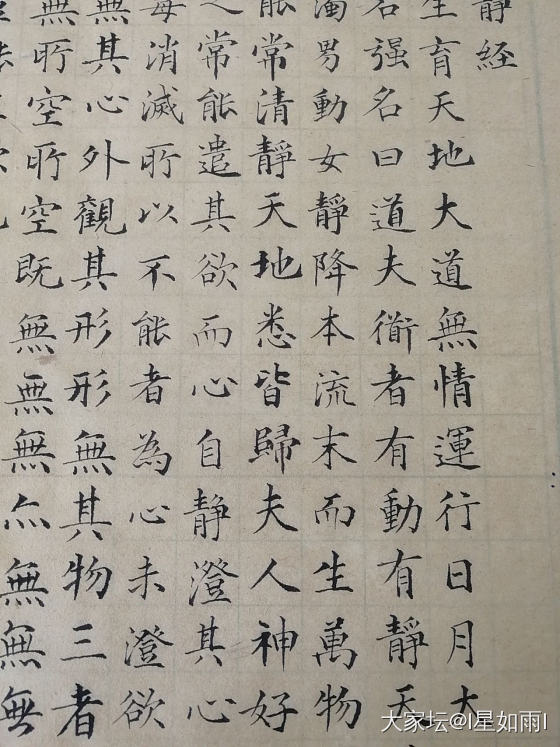 靜経
生育天地大道無情運行日月大
名强名曰道夫衜者有動有靜天
濁男動女靜降本流末而生萬物
能常清靜天地悉皆歸夫人神好
常能遣其欲而心自靜澄其心
毒消滅所以不能者為心未澄欲
無其心外觀其形形無其物三者
無所空所空既無無無亦無無無
大家坛@I星如雨I